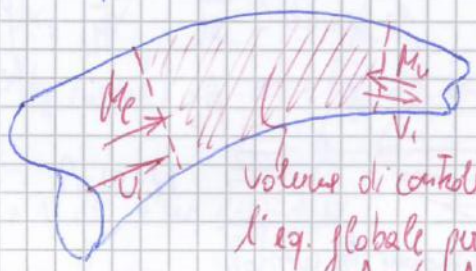 Me
Mu
V₁
V₁
volume di control
l'eq. globale pu